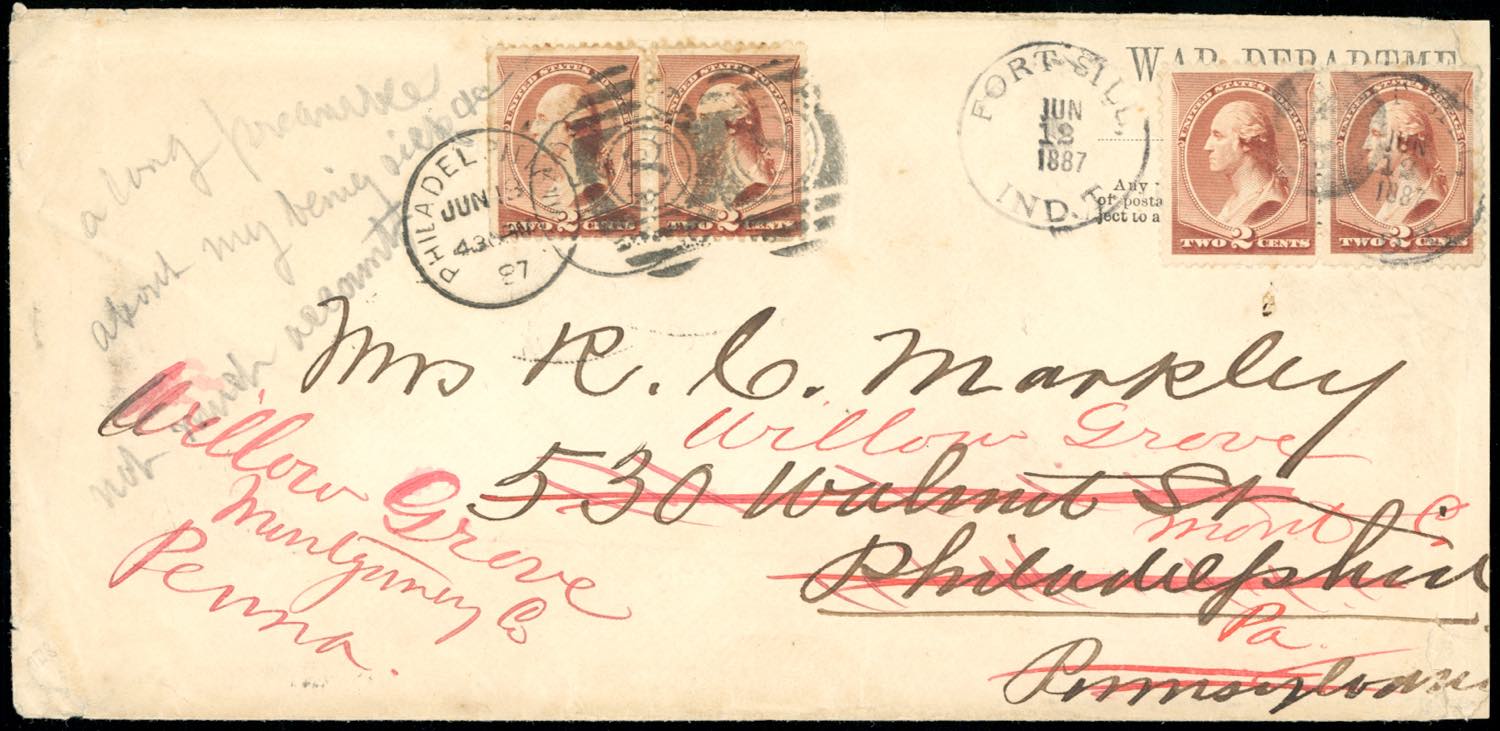 WAR DEPARTME
FORT SILL
JUN
12
1887
IND. T.
Any
of posta
ject to a
UNITED STATES POSTAGE
TWO 2 CENTS
UNITED STATES POSTAGE
TWO 2 CENTS
JUN
1887
UNITED STATES POSTAGE
TWO 2 CENTS
UNITED STATES POSTAGE
TWO 2 CENTS
PHILADEL
JUN 18
430
87
a long preamble
about my being
not accounts
Mrs R. C. Markley
Willow Grove
530 Walnut St
Mont C
Philadelphia
Pa.
Pennsylvani
Willow Grove
Muntgumery Co
Penna.